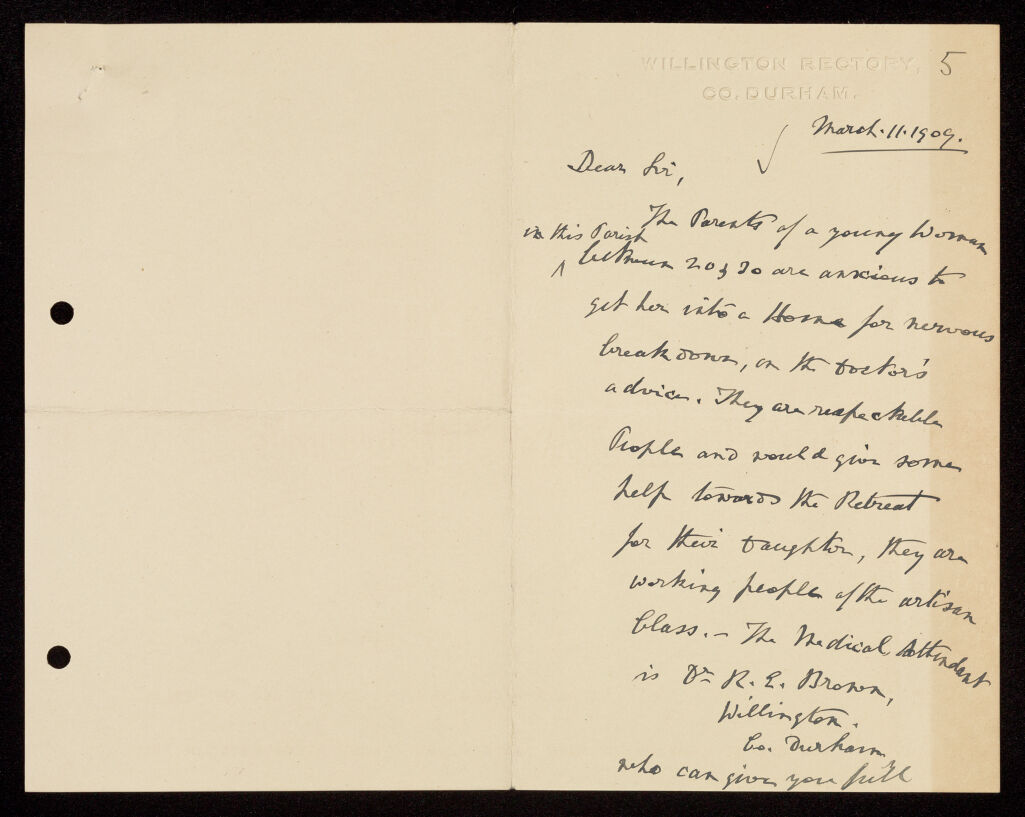 WILLINGTON RECTORY, 5
CO. DURHAM.
March. 11. 1909.
Dear Sir,
The Parents of a young Woman
in this Parish
^ between 20 & 30 are anxious to
get her into a Home for nervous
breakdown, on the Doctor's
advice. They are respectable
People and would give some
help towards the Retreat
for their Daughter, they are
working people of the artisan
Class. – The Medical Attendant
is Dr R. E. Brown,
Willington.
Co. Durham
who can give you full